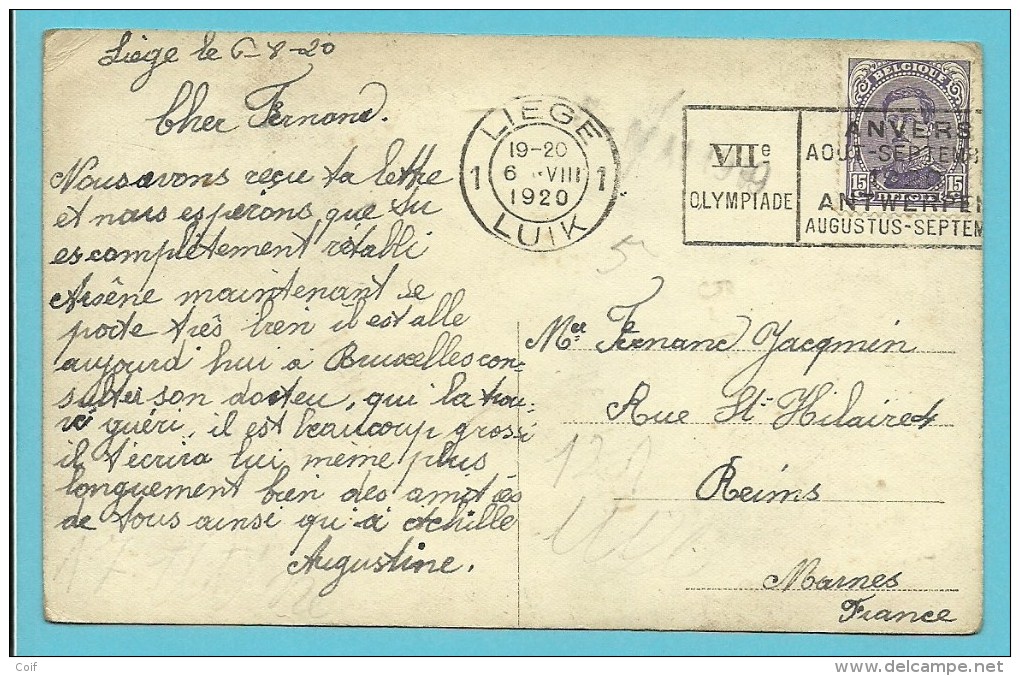 Liège le 6-8-20
Cher Fernand.
Nous avons reçu ta lettre
et nous espérons que tu
es complètement rétabli
Arsène maintenant se
porte très bien il est allé
aujourd hui à Bruxelles con-
sulter son docteu, qui la trou-
vé guéri, il est beaucoup grossi
il t'écrira lui meme plus
longuement bien des amitiés
de tous ainsi qu'à Achille
Augustine.
LIEGE
19-20
1 6 VIII 1
1920
LUIK
VIIe
OLYMPIADE
ANVERS
AOUT-SEPTEMB
1920
ANTWERPEN
AUGUSTUS-SEPTEM
BELGIQUE
15 15
Mer Fernand Jacqmin
Rue St Hilaire 4
Reims
Marnes
France
Coif
www.delcampe.net